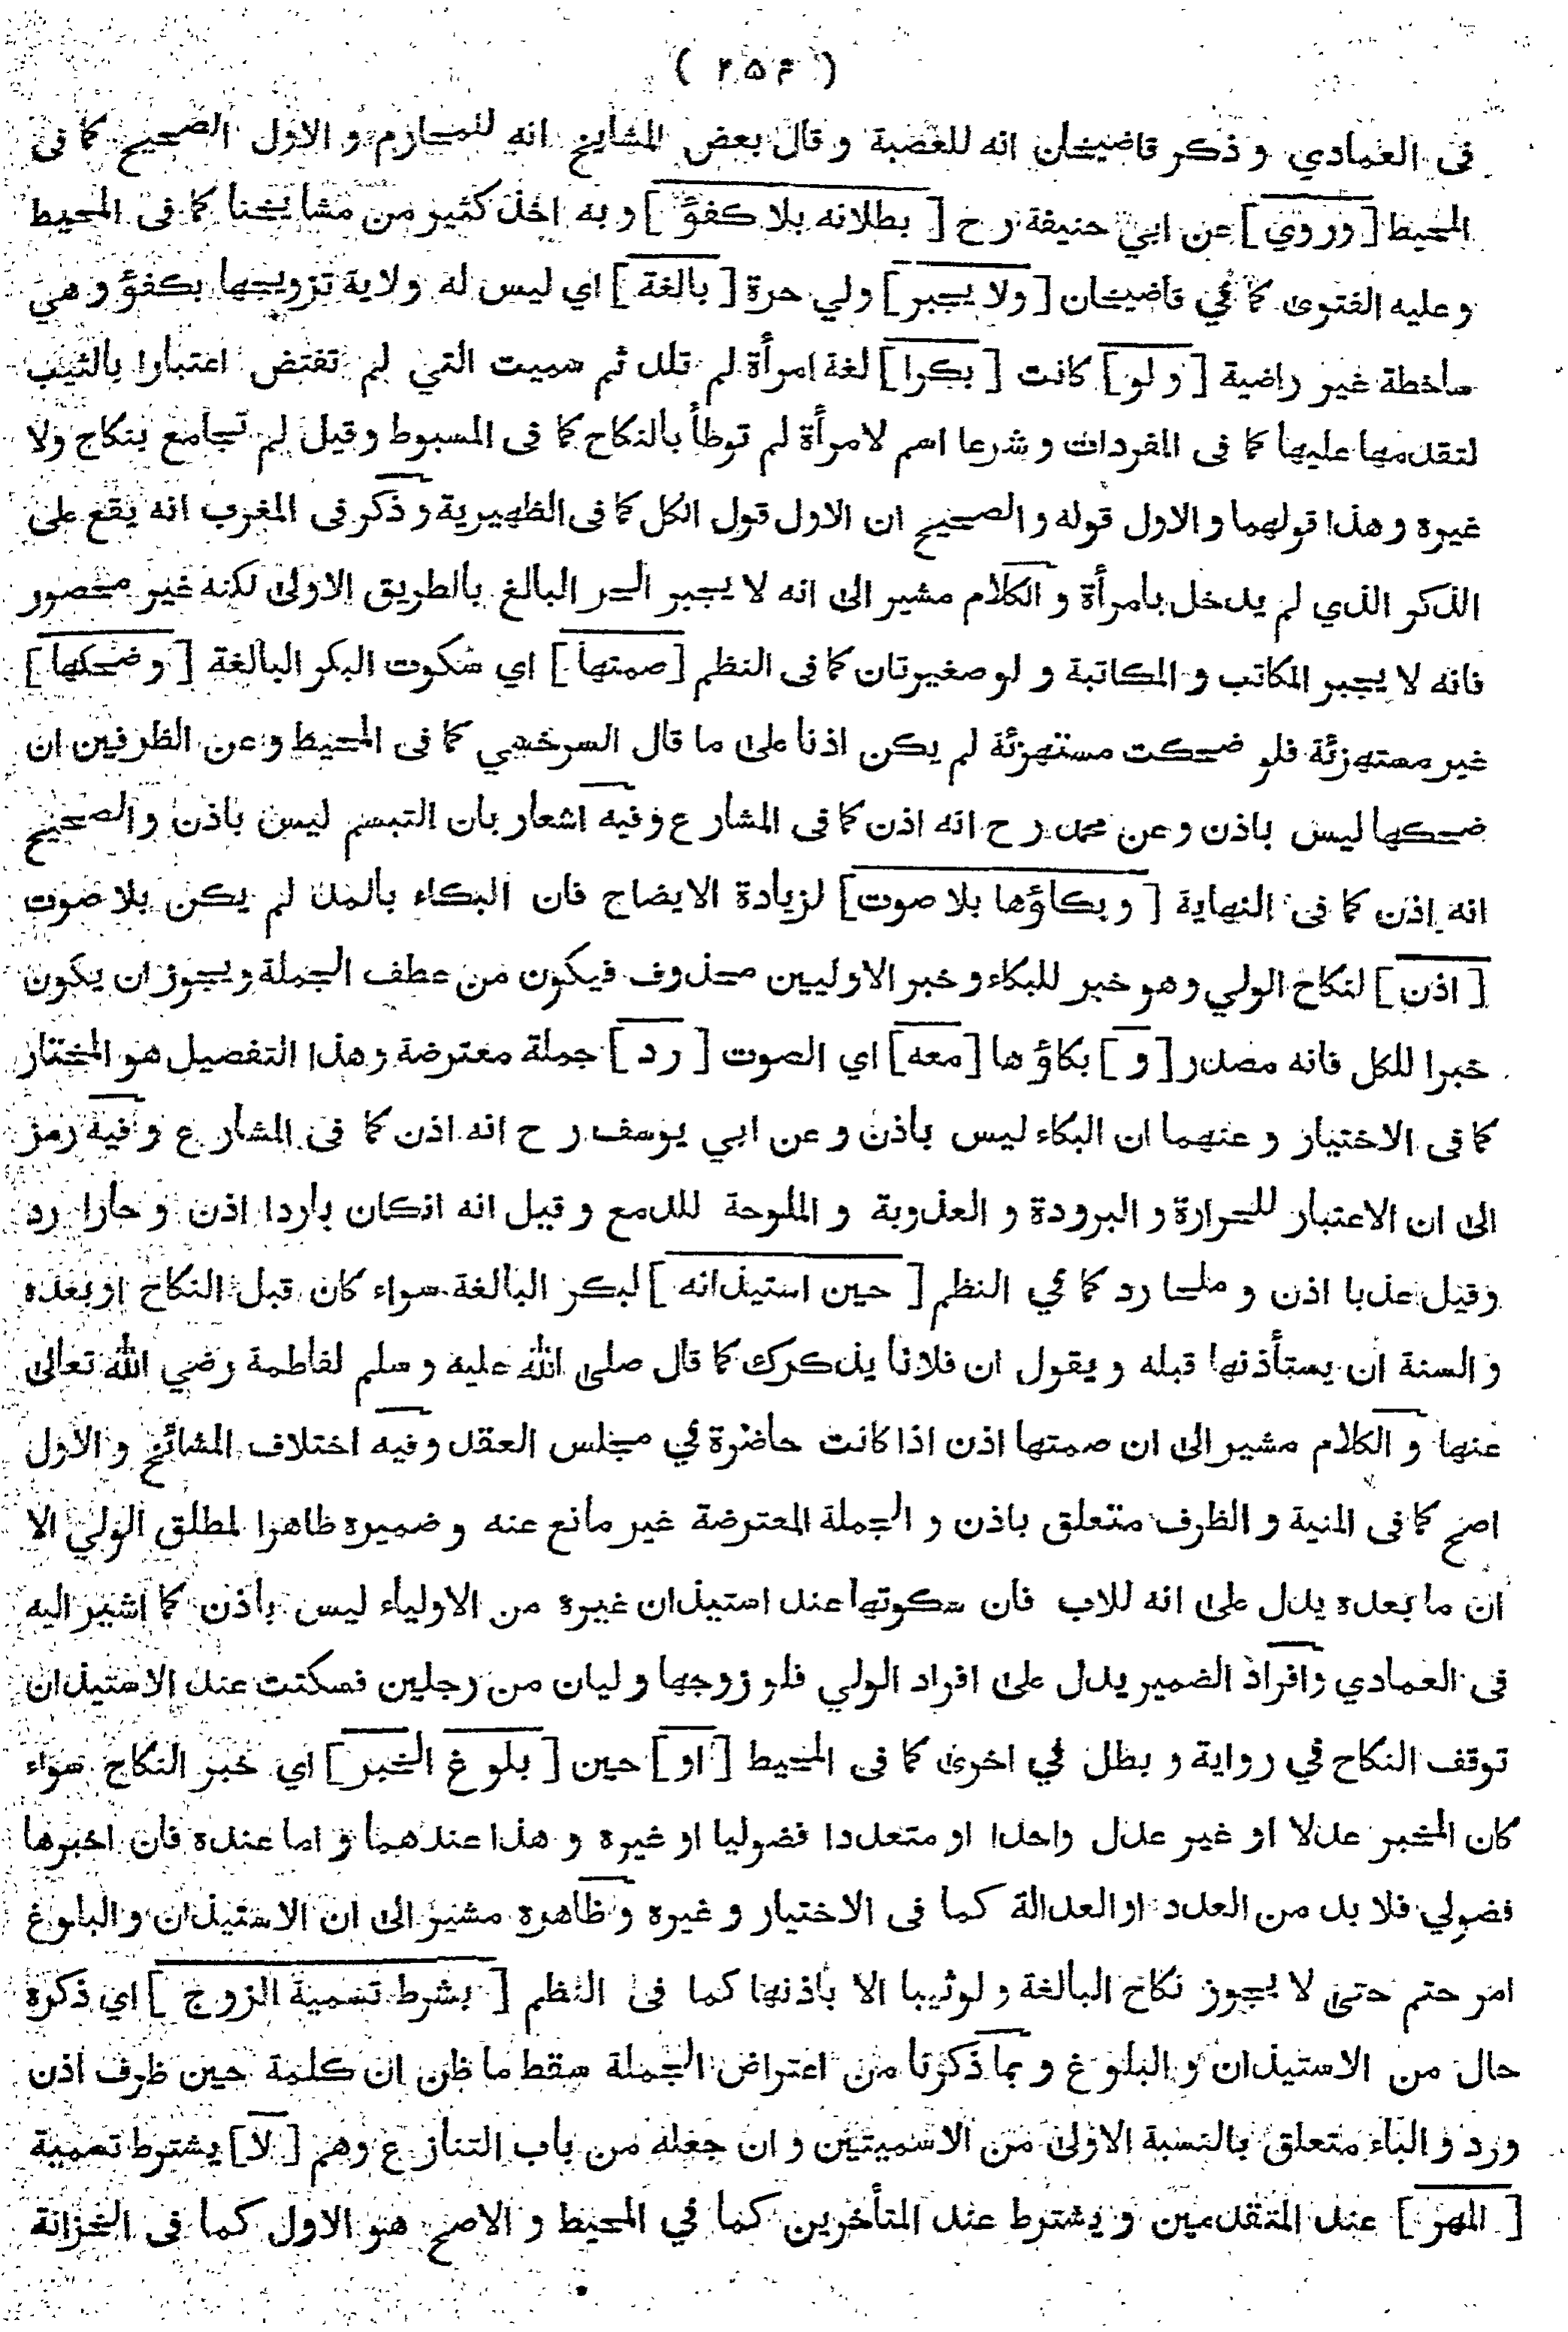 ( ٢٥٤ )
فى العمادي و ذكر قاضيخان انه للعصبة و قال بعض المشايخ انه للمحارم و الاول الصحيح كما فى
المحيط [ وروي ] عن ابي حنيفة ر ح [ بطلانه بلا كفؤ ] و به اخذ كثير من مشايخنا كما فى المحيط
و عليه الفتوى كما في قاضيخان [ ولا يجبر ] ولي حرة [ بالغة ] اي ليس له ولاية تزويجها بكفؤ و هي
ساخطة غير راضية [ و لو ] كانت [ بكرا ] لغة امرأة لم تلد ثم سميت التي لم تفتض اعتبارا بالثيب
لتقدمها عليها كما فى المفردات و شرعا اسم لامرأة لم توطأ بالنكاح كما فى المسبوط و قيل لم تجامع بنكاح ولا
غيره و هذا قولهما و الاول قوله و الصحيح ان الاول قول الكل كما فى الظهيرية و ذكر فى المغرب انه يقع على
الذكر الذي لم يدخل بامرأة و الكلام مشير الى انه لا يجبر الحر البالغ بالطريق الاولى لكنه غير محصور
فانه لا يجبر المكاتب و المكاتبة و لو صغيرتان كما فى النظم [ صمتها ] اي سكوت البكر البالغة [ و ضحكها ]
غير مستهزئة فلو ضحكت مستهزئة لم يكن اذنا على ما قال السرخسي كما فى المحيط و عن الطرفين ان
ضحكها ليس باذن و عن محمد ر ح انه اذن كما فى المشار ع و فيه اشعار بان التبسم ليس باذن و الصحيح
انه اذن كما فى النهاية [ و بكاؤها بلا صوت ] لزيادة الايضاح فان البكاء بالمد لم يكن بلا صوت
[ اذن ] لنكاح الولي و هو خبر للبكاء و خبر الاوليين محذوف فيكون من عطف الجملة و يجوز ان يكون
خبرا للكل فانه مصدر [ و ] بكاؤ ها [ معه ] اي الصوت [ رد ] جملة معترضة و هذا التفصيل هو المختار
كما فى الاختيار و عنهما ان البكاء ليس باذن و عن ابي يوسف ر ح انه اذن كما فى المشار ع و فيه رمز
الى ان الاعتبار للحرارة و البرودة و العذوبة و الملوحة للدمع و قيل انه انكان باردا اذن و حارا رد
وقيل عذبا اذن و ملحا رد كما في النظم [ حين استيذانه ] لبكر البالغة سواء كان قبل النكاح او بعده
و السنة ان يستأذنها قبله و يقول ان فلانا يذكرك كما قال صلى الله عليه و سلم لفاطمة رضي الله تعالى
عنها و الكلام مشير الى ان صمتها اذن اذا كانت حاضرة في مجلس العقد و فيه اختلاف المشائخ و الاول
اصح كما فى المنية و الظرف متعلق باذن و الجملة المعترضة غير مانع عنه و ضميره ظاهرا لمطلق الولي الا
ان ما بعده يدل على انه للاب فان سكوتها عند استيذان غيره من الاولياء ليس باذن كما اشير اليه
فى العمادي و افراد الضمير يدل على افراد الولي فلو زوجها وليان من رجلين فسكتت عند الاستيذان
توقف النكاح في رواية و بطل في اخرى كما فى المحيط [ او ] حين [ بلو غ الخبر ] اي خبر النكاح سواء
كان المخبر عدلا او غير عدل واحدا او متعددا فضوليا او غيره و هذا عندهما و اما عنده فان اخبرها
فضولي فلا بد من العدد او العدالة كما فى الاختيار و غيره و ظاهره مشير الى ان الاستيذان و البلو غ
امر حتم حتى لا يجوز نكاح البالغة و لو ثيبا الا باذنها كما فى النظم [ بشرط تسمية الزوج ] اي ذكره
حال من الاستيذان و البلو غ و بما ذكرنا من اعتراض الجملة سقط ما ظن ان كلمة حين ظرف اذن
ورد و الباء متعلق بالنسبة الاولى من الاسميتين و ان جعله من باب التناز ع وهم [ لا ] يشترط تسمية
[ المهر ] عند المتقدمين و يشترط عند المتأخرين كما في المحيط و الاصح هو الاول كما فى الخزانة